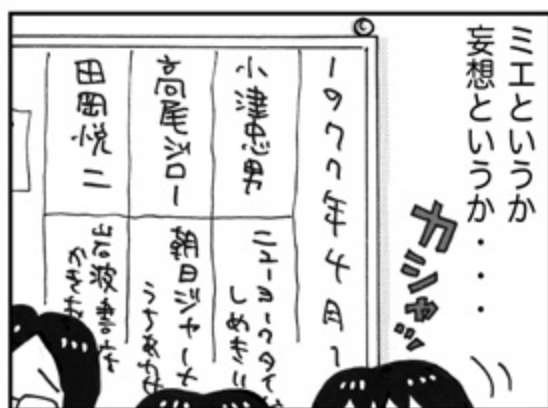 ミエというか
妄想というか・・・
カシャ
1977年4月
小津忠男
ニューヨークタイ
しめきり
高尾ジロー
朝日ジャーナ
うちあわせ
田岡悦二
岩波書店
かきお